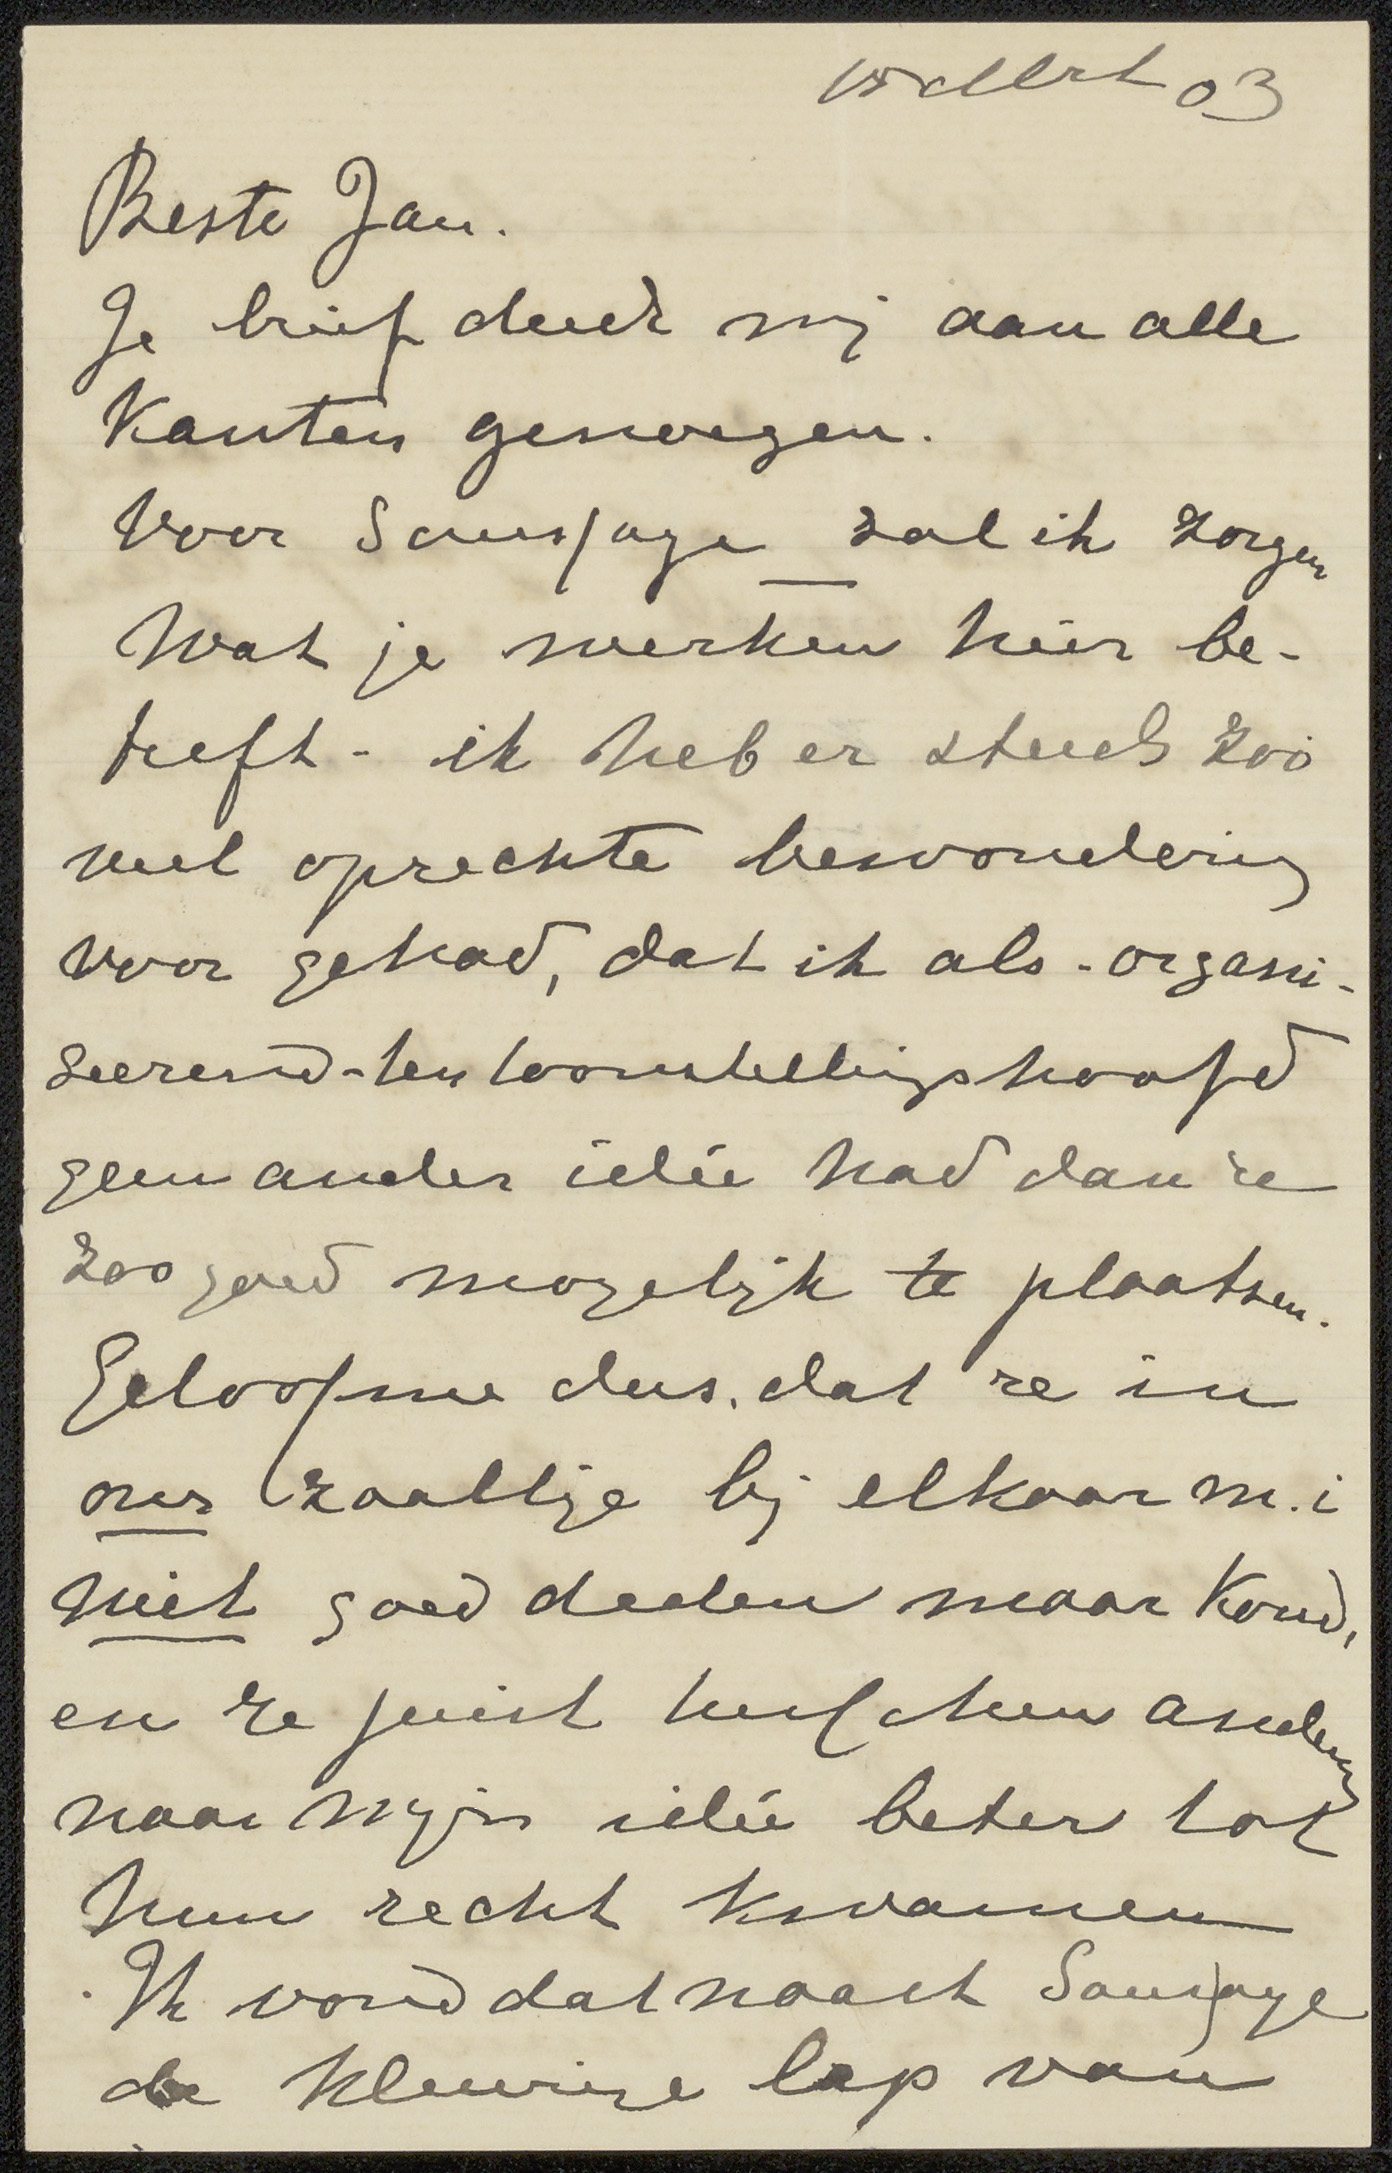 03
Beste Jan.
Je brief deed mij aan alle
Kanten genoegen.
Voor Saussaye zal ik zorgen
Wat je werken hier be-
treft - ik heb er steeds zoo
veel oprechte bewondering
voor gehad, dat ik als - organi-
seerend - tentoonstellingshoofd
geen ander idée had dan ze
zoo goed mogelijk te plaatsen.
Geloof me dus, dat ze in
ons zaaltje bij elkaar m.i
niet goed deden maar koud,
en ze juist tusschen anderen
naar mijn idée beter tot
hun recht kwamen
Ik vond dat naast Saussaye
de kleurige lap van